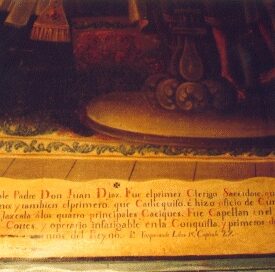 ble Padre Don Juan Diaz. Fue el primer Clerigo Sacerdote, que
y tambien el primero, que Catequizó, é hizo oficio de Cura
laxcala à los quatro principales Caciques. Fue Capellan en el
Cortes, y operario infatigable en la Conquista, y primeros
nios del Reyno. Libro IV. Capitulo